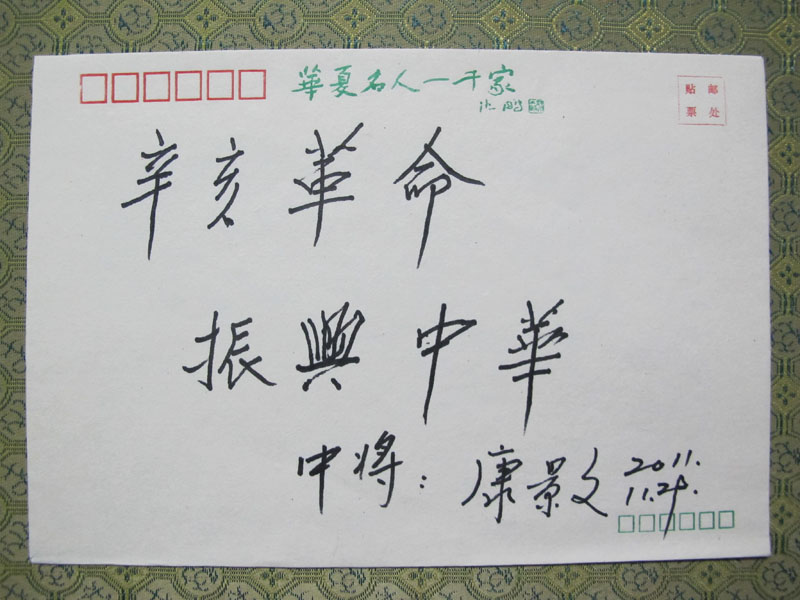 華夏名人一千家
沈鹏
贴邮
票处
辛亥革命
振興中華
中将：康景文 2011.
11.25.